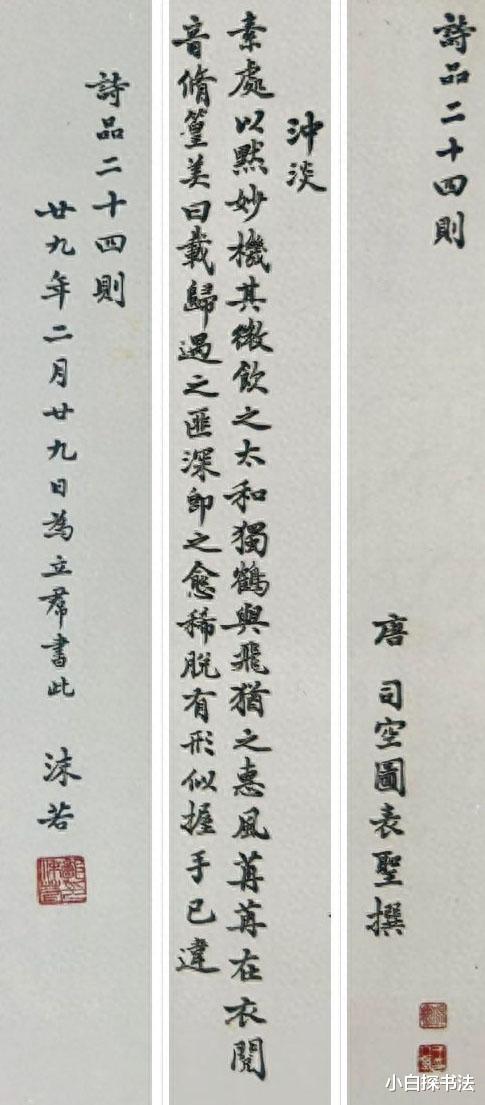 詩品二十四則
唐 司空圖表聖撰
沖淡
素處以默妙機其微飲之太和獨鶴與飛猶之惠風苒苒在衣閱
音脩篁美曰載歸遇之匪深即之愈稀脫有形似握手已違
詩品二十四則
廿九年二月廿九日為立羣書此 沫若
小白探书法